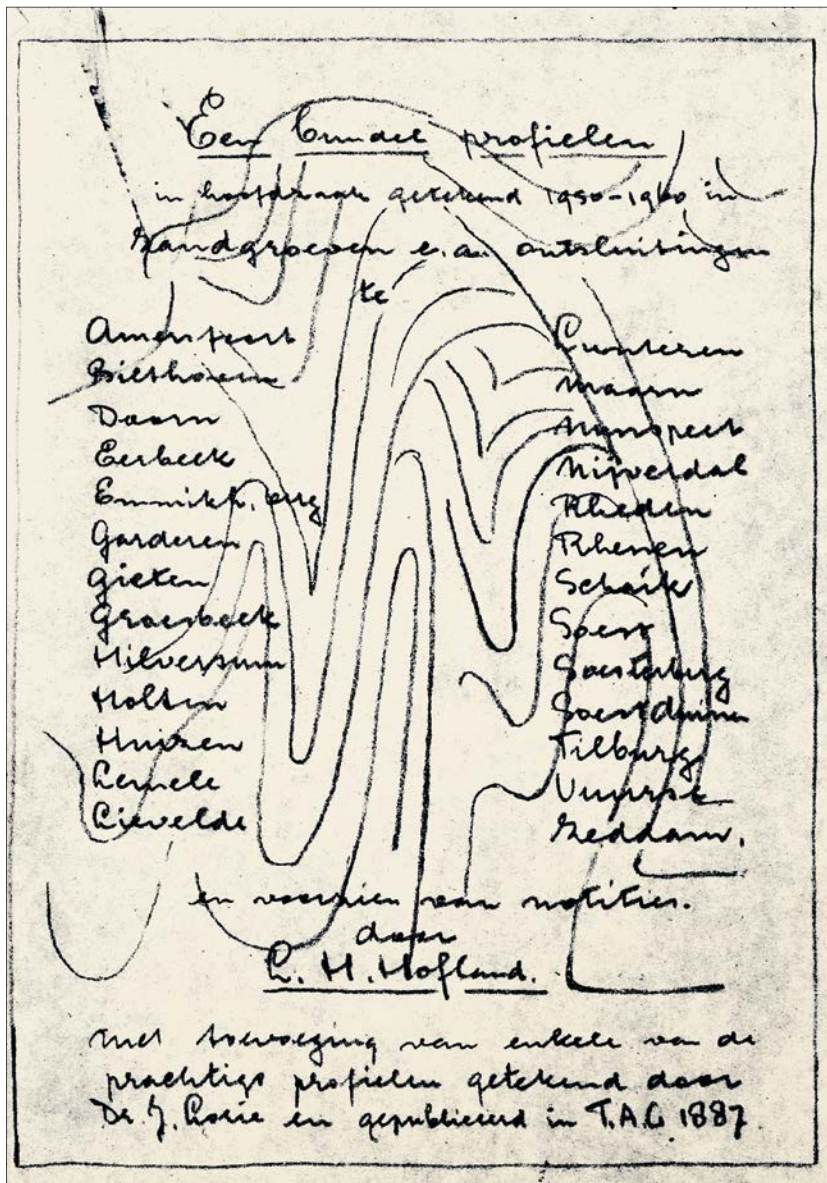 Een bundel profielen
in hoofdzaak getekend 1950-1960 in
Zandgroeven e.a. ontsluitingen
te
Amersfoort
Bilthoven
Doorn
Eerbeek
Emmikh. erg
Garderen
Gieten
Groesbeek
Hilversum
Holten
Huizen
Lemele
Lievelde
Lunteren
Maarn
Nunspeet
Nijverdal
Rheden
Rhenen
Schaik
Soest
Soesterberg
Soestduinen
Tilburg
Vuursche
Zeddam.
en voorzien van notities.
door
L. H. Hofland.
met toevoeging van enkele van de
prachtige profielen getekend door
Dr. J. Lorie en gepubliceerd in T.A.G 1887